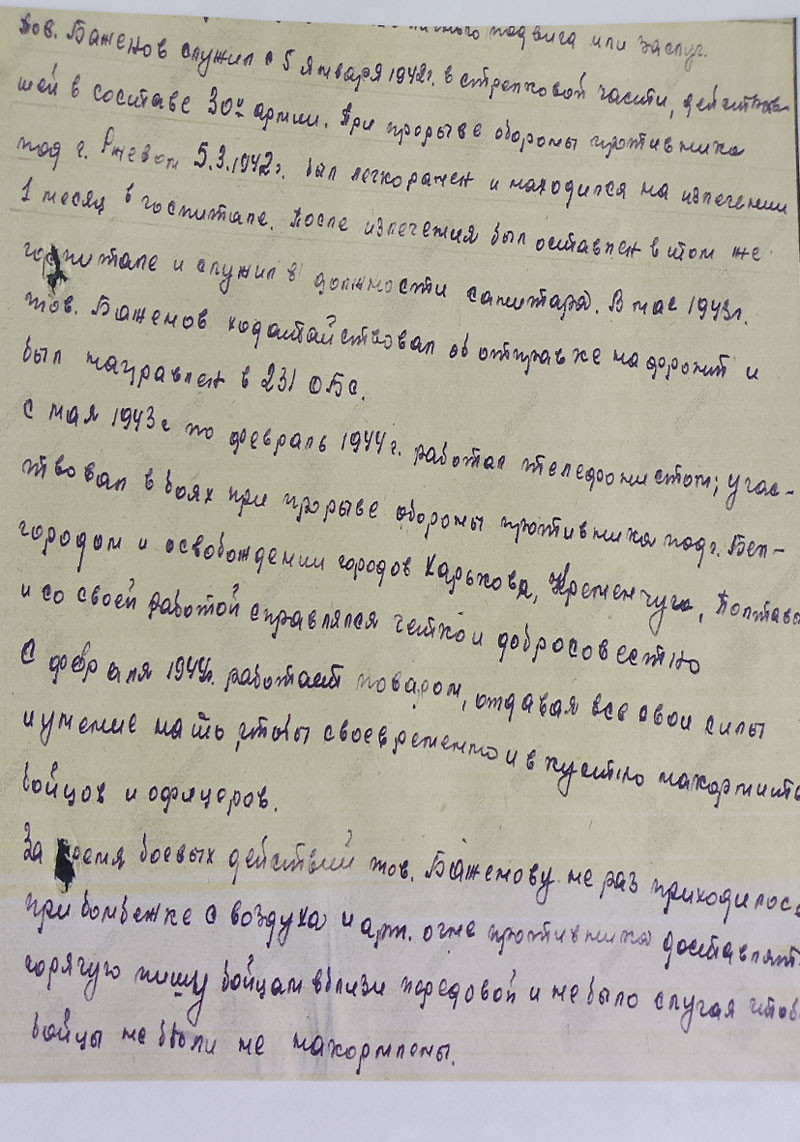 личного подвига или заслуг.
Тов. Баженов служил с 5 января 1942г. в стрелковой части, действов
шей в составе 30й армии. При прорыве обороны противника
под г. Ржевом 5.3.1942г. был легкоранен и находился на излечении
1 месяц в госпитале. После излечения был оставлен в том же
госпитале и служил в должности санитара. В мае 1943г.
тов. Баженов ходатайствовал об отправке на фронт и
был направлен в 231 ОБС.
С мая 1943г по февраль 1944г. работал телефонистом; учас-
твовал в боях при прорыве обороны противника под г. Бел-
городом и освобождении городов Харькова, Кременчуга, Полтавы
и со своей работой справлялся четко и добросовестно
С февраля 1944г. работает поваром, отдавая все свои силы
и умение на то, чтобы своевременно и вкустно накормить
бойцов и офицеров.
За время боевых действий тов. Баженову не раз приходилось
при бомбежке с воздуха и арт. огне противника доставлять
горячую пищу бойцам вблизи передовой и не было случая чтобы
бойцы не были не накормлены.